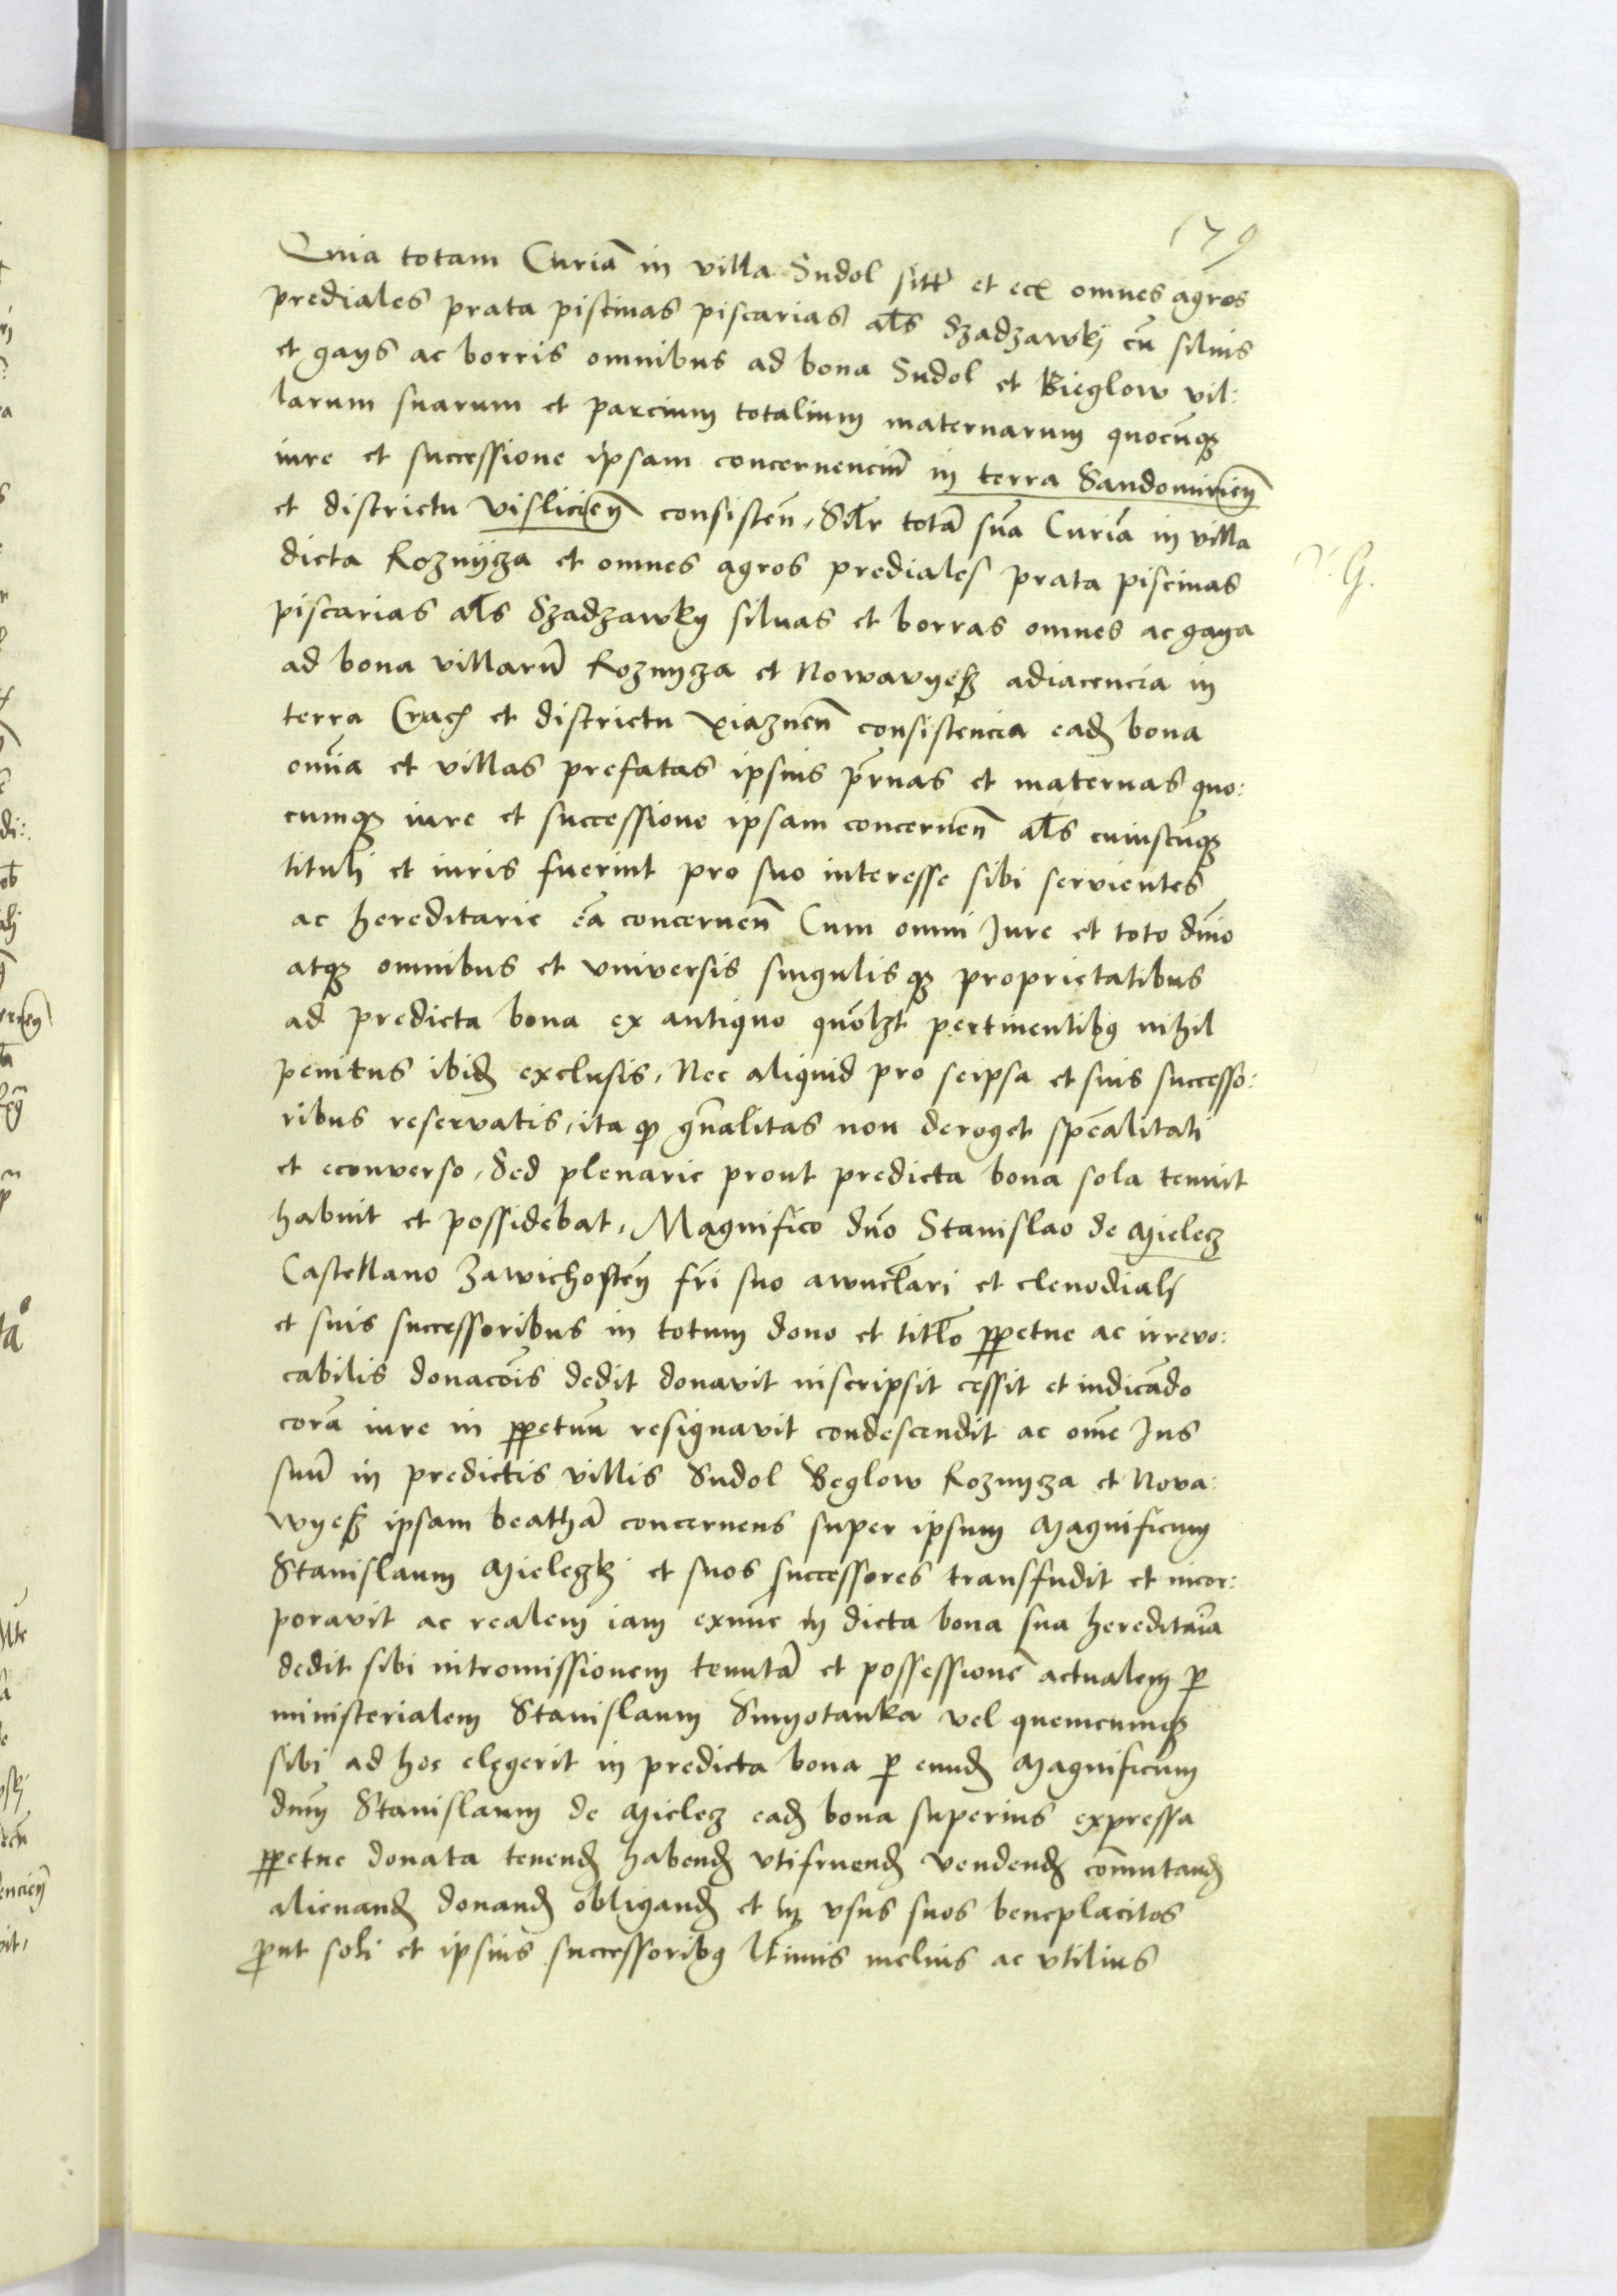 79
Quia totam Curiā in villa Sudol sitt̄ et ecc̄ omnes agros
prediales prata piscinas piscarias als Szadzawkj cū siluis
et gays ac borris omnibus ad bona Sudol et Bieglow vil:
larum suarum et parcium totalium maternarum quocūqȝ
iure et successione ipsam concernenciū in terra Sandomirien̄
et districtu vislicien̄ consisten̄, Silr totā suā Curiā in villa
dicta Roznijcza et omnes agros prediales prata piscinas
piscarias als Szadzawky siluas et borras omnes ac gaya
ad bona villarū Roznycza et Nowavyesz adiacencia in
terra Crac̄ et districtu xiaznen̄ consistencia ead bona
omīa et villas prefatas ipsius pr̄nas et maternas quo:
cumqȝ iure et successione ipsam concernen̄ als cuiuscūqȝ
tituli et iuris fuerint pro suo interesse sibi servientes
ac hereditarie eā concernen̄ Cum omni Jure et toto dnīo
atqȝ omnibus et vniversis singulisqȝ proprietatibus
ad predicta bona ex antiquo quōlȝt pertinentibȝ nihil
penitus ibid exclusis, Nec aliquid pro seipsa et suis successo:
ribus reservatis, ita qȝ gn̄alitas non deroget speālitati
et econverso, Sed plenarie prout predicta bona sola tenuit
habuit et possidebat, Magnifico dn̄o Stanislao de Mielecz
Castellano Zawichosten̄ frī suo awuncl̄ari et clenodiali
et suis successoribus in totum dono et titl̄o ppetue ac irrevo:
cabilis donacōis dedit donavit inscripsit cessit et indicādo
corā iure in ppetuū resignavit condescendit ac om̄e Jus
suū in predictis villis Sudol Beglow Roznycza et Nova:
wyesz ipsam beathā concernens super ipsum Magnificum
Stanislaum Mieleczkj et suos successores transfudit et incor:
poravit ac realem iam exnunc in dicta bona sua hereditaīa
dedit sibi intromissionem tenutā et possessionē actualem p
ministerialem Stanislaum Smyotanka vel quemcumqȝ
sibi ad hoc elegerit in predicta bona p eund Magnificum
dnm̄ Stanislaum de Mielecz ead bona superius expressa
ppetue donata tenend habend vtifruend vendend cōmutand
alienand donand obligand et in vsus suos beneplacitos
put soli et ipsius successoribȝ ltīmis melius ac vtilius